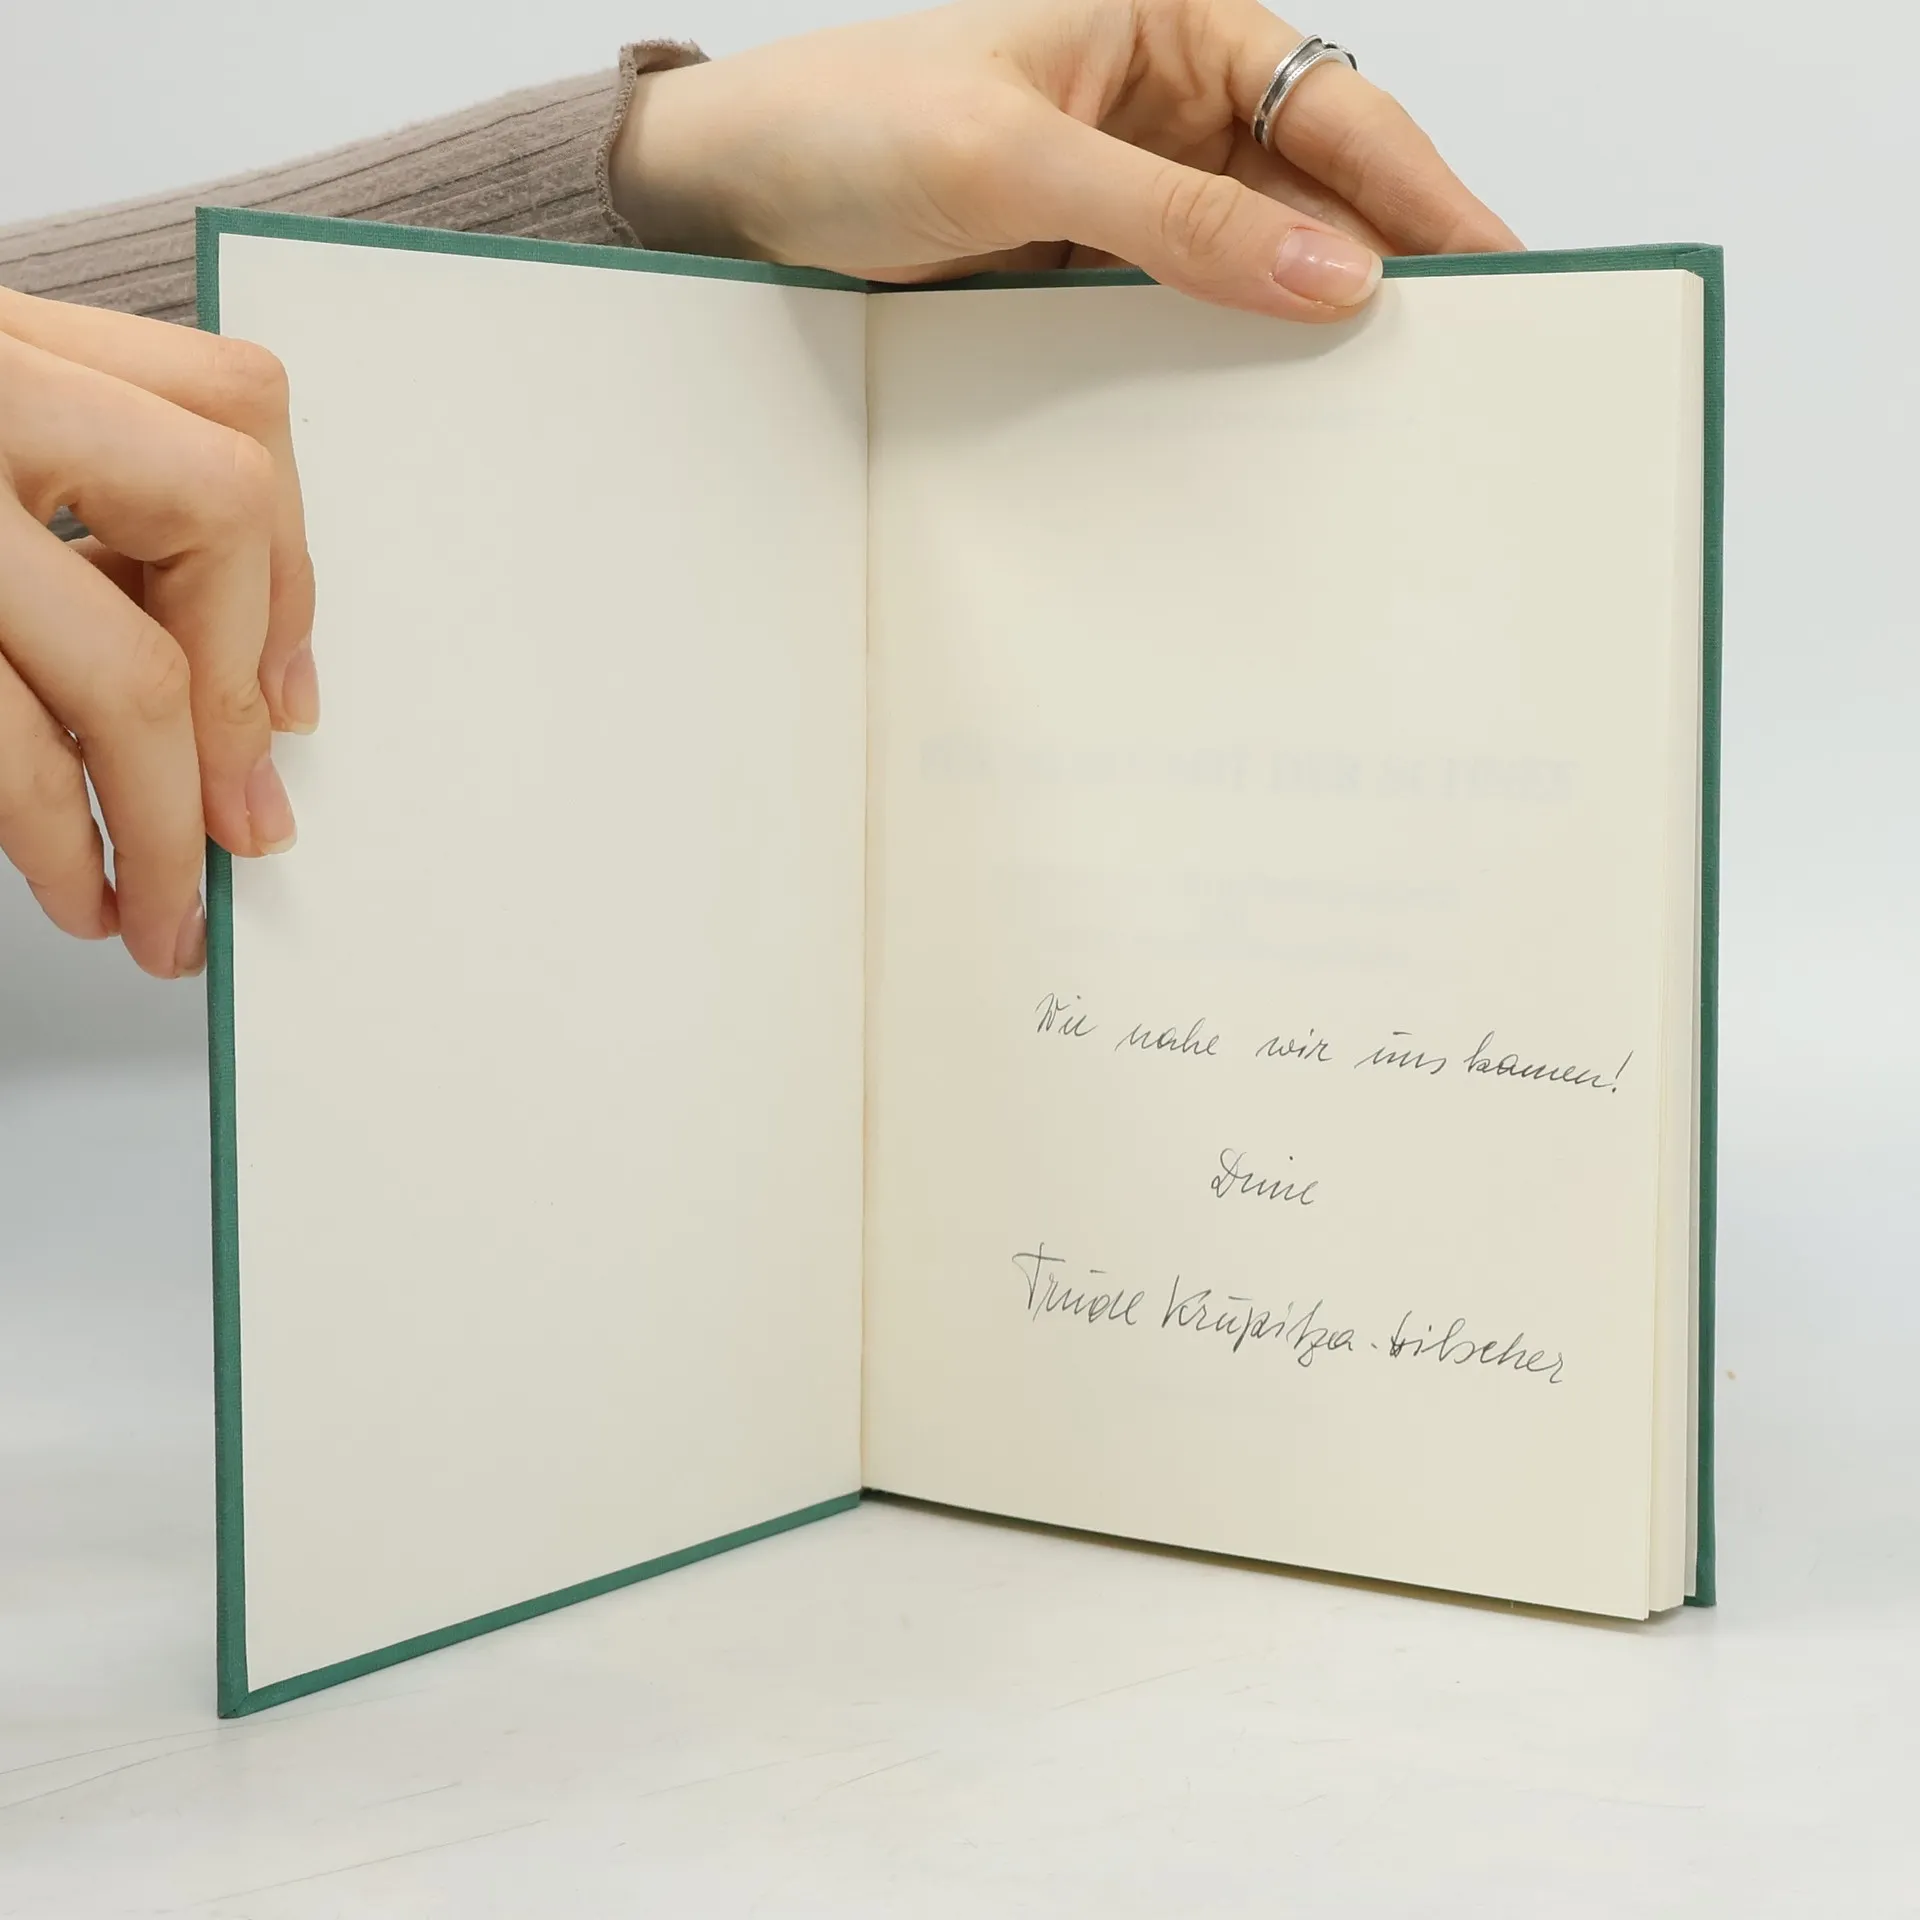 Wie nahe wir uns kamen!
Deine
Trude Krupitza-Hilscher